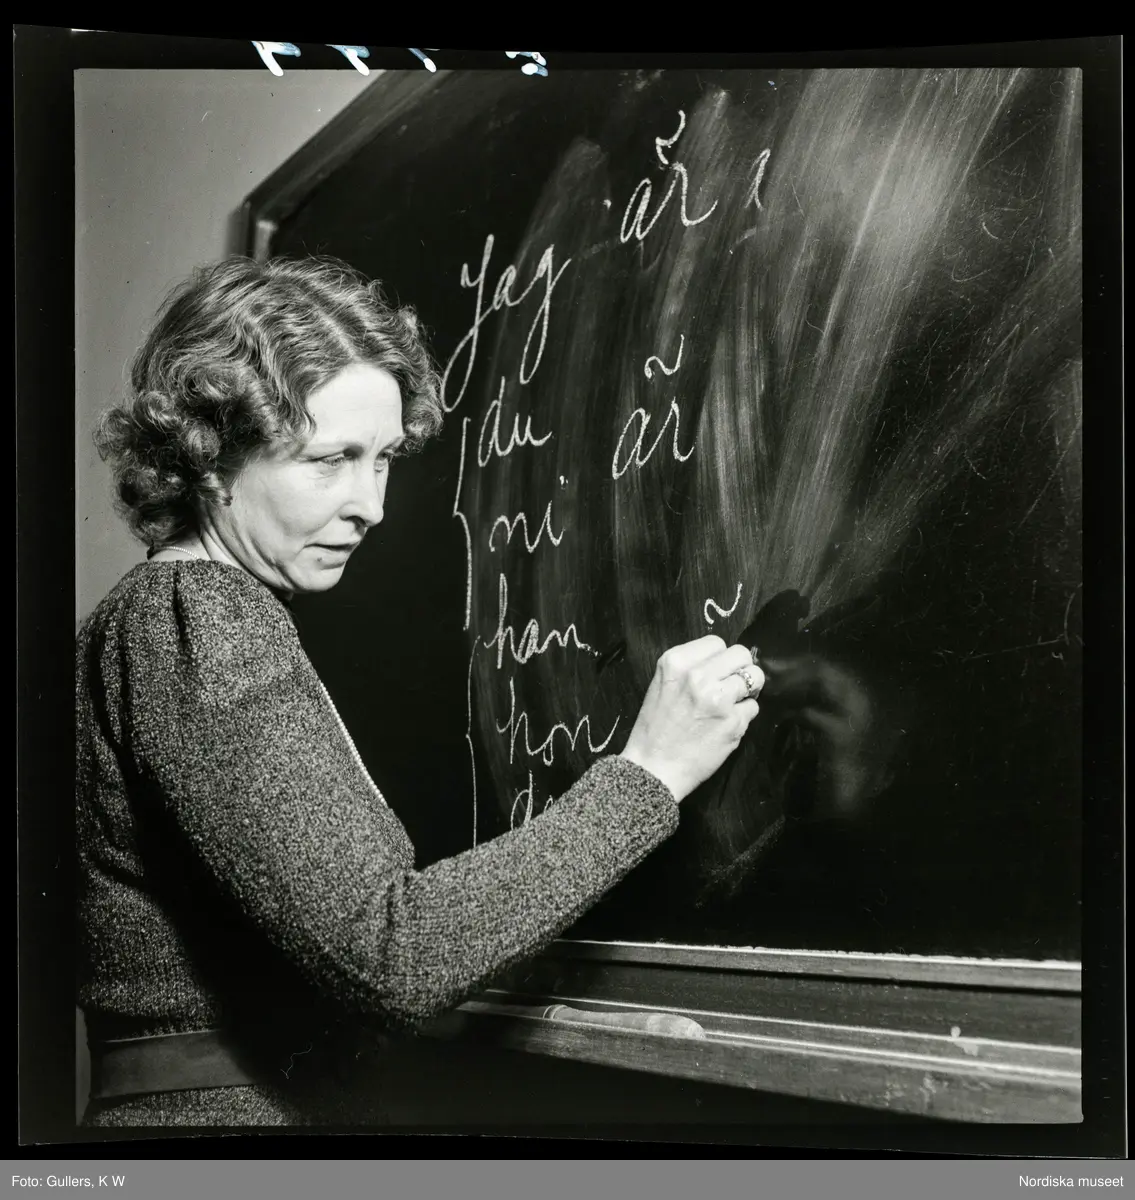 Jag är
du är
ni
han
hon
Foto: Gullers, K W
Nordiska museet